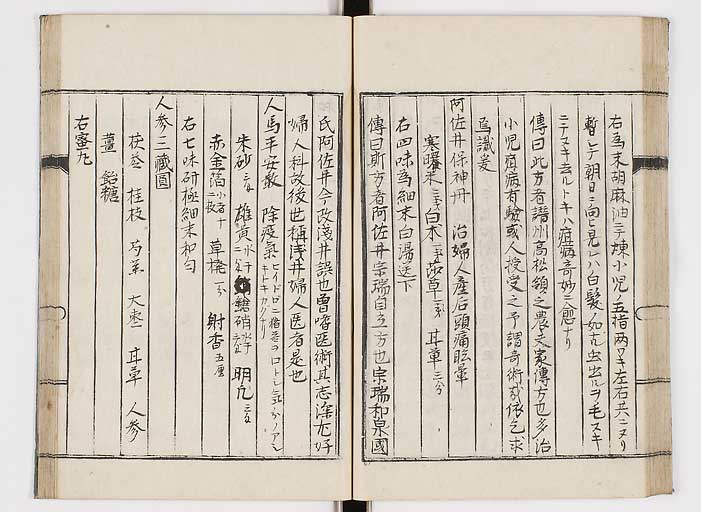 右為末胡麻油ニテ煉小児ノ五指両ワキ左右共ニヌリ
暫シテ朝日ニ向ヒ見レハ白髪ノ如キ虫出ルヲ毛ヌキ
ニテヌキ去ルトキハ疳病奇妙ニ愈ナリ
傳曰此方者讃州高松領之農夫家傳方也多治
小児疳病有驗或人授受之予謂奇術哉依乞求
為識爰
阿佐井保神丹 治婦人産后頭痛眩暈
寒曝米 白朮 莎草 甘草三分
右四味為細末白湯送下
傳曰斯方者阿佐井宗瑞自立方也宗瑞和泉國
氏阿佐井今改淺井誤也曽嗜医術其志深尤好
婦人科故後世稱浅井婦人医者是也
人馬平安散 除疫氣
朱砂 雄黄 硝 明凡
赤金箔 草撥一分 射香五厘
右七味研極細末和匀
人参三臓圓
茯苓 桂枝 芍薬 大棗 甘草 人参
薑 飴糖
右蜜丸